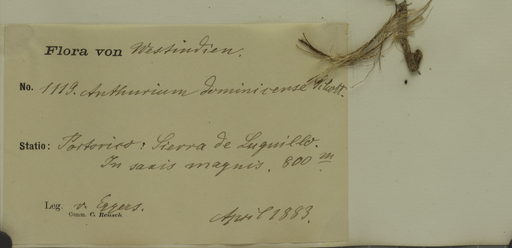 Flora von Westindien.
No. 1119. Anthurium dominicense Schott.
Statio: Portorico: Sierra de Luquillo.
In saxis magnis. 800 m
Leg. v. Eggers.
Comm. C. Reusch
April 1883.